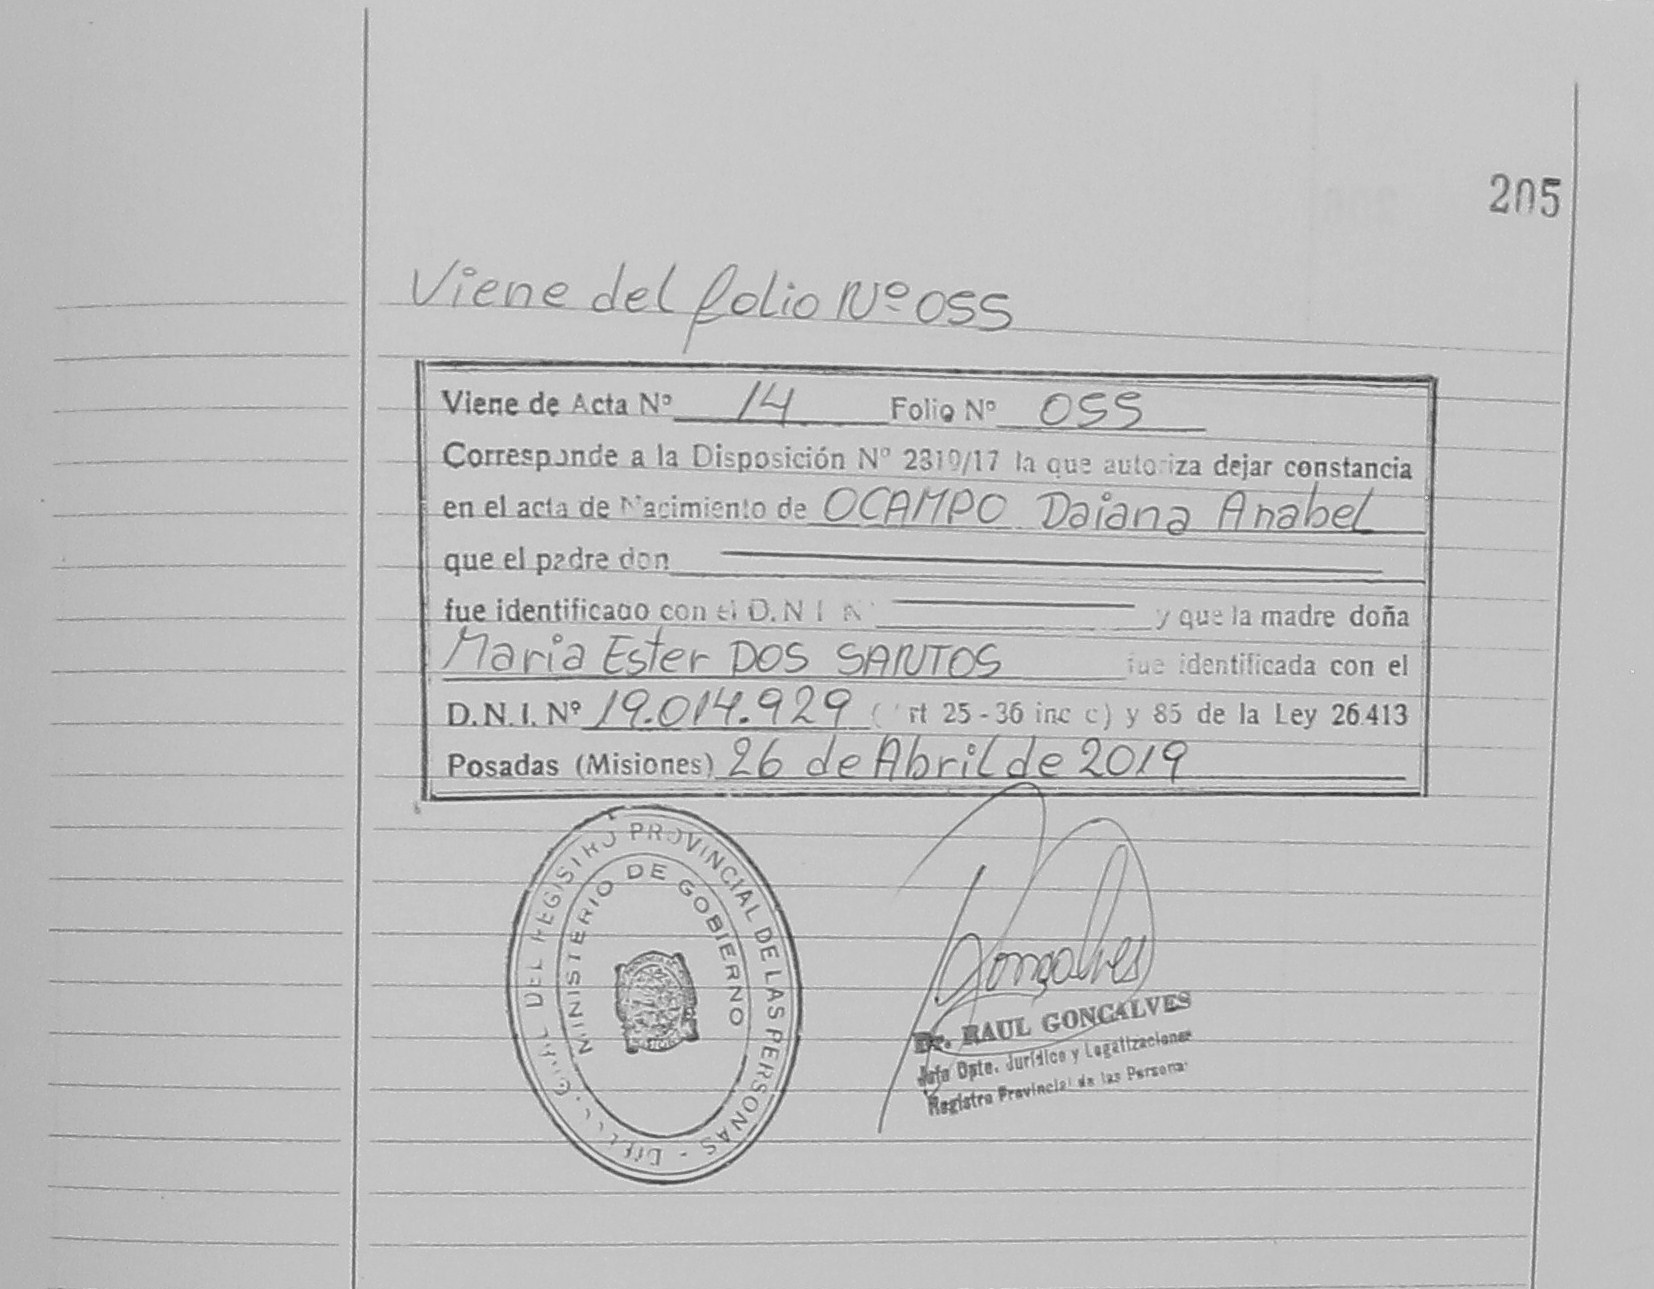 205
Viene del folio Nº 055
Viene de Acta Nº 14 Folio Nº 055
Corresponde a la Disposición Nº 2319/17 la que autoriza dejar constancia
en el acta de Nacimiento de OCAMPO Daiana Anabel
que el padre don
fue identificado con el D.N.I. Nº y que la madre doña
Maria Ester DOS SANTOS fue identificada con el
D.N.I. Nº 19.014.929 (Art 25 - 36 inc c) y 85 de la Ley 26.413
Posadas (Misiones) 26 de Abril de 2019
GRAL DEL REGISTRO PROVINCIAL DE LAS PERSONAS -
MINISTERIO DE GOBIERNO
Gonçalves
Dr. RAUL GONCALVES
Jefe Dpto. Jurídico y Legalizaciones
Registro Provincial de las Personas